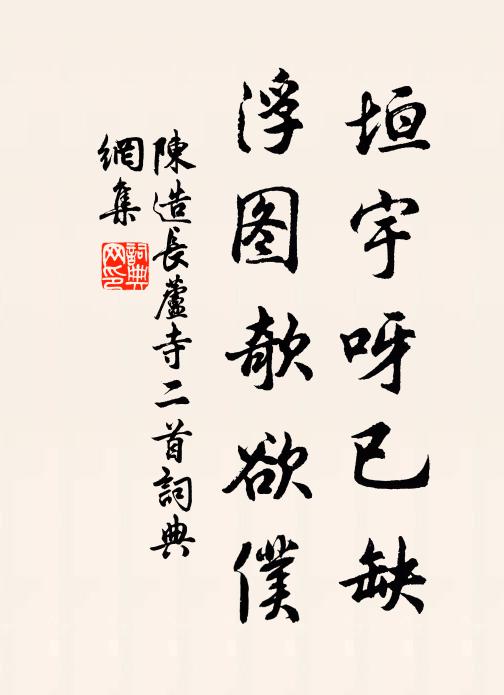 垣宇呀已缺
浮图欹欲僕
陳造長蘆寺二首詞典
網集
詞典
网印